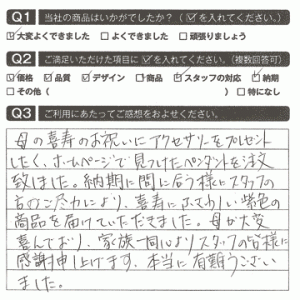 Q1 当社の商品はいかがでしたか？（☑を入れてください。）
☑大変よくできました □よくできました □頑張りましょう
Q2 ご満足いただけた項目に☑を入れてください。（複数回答可）
☑価格 ☑品質 ☑デザイン □商品 ☑スタッフの対応 ☑納期
□その他（ ）□特になし
Q3 ご利用にあたってご感想をおよせください。
母の喜寿のお祝いにアクセサリーをプレゼント
したく、ホームページで見つけたペンダントを注文
致しました。納期に間に合う様にスタッフの
方のご尽力により、喜寿にふさわしい紫色の
商品を届けていただきました。母が大変
喜んでおり、家族一同よりスタッフの皆様に
感謝申し上げます。本当に有難うござい
ました。